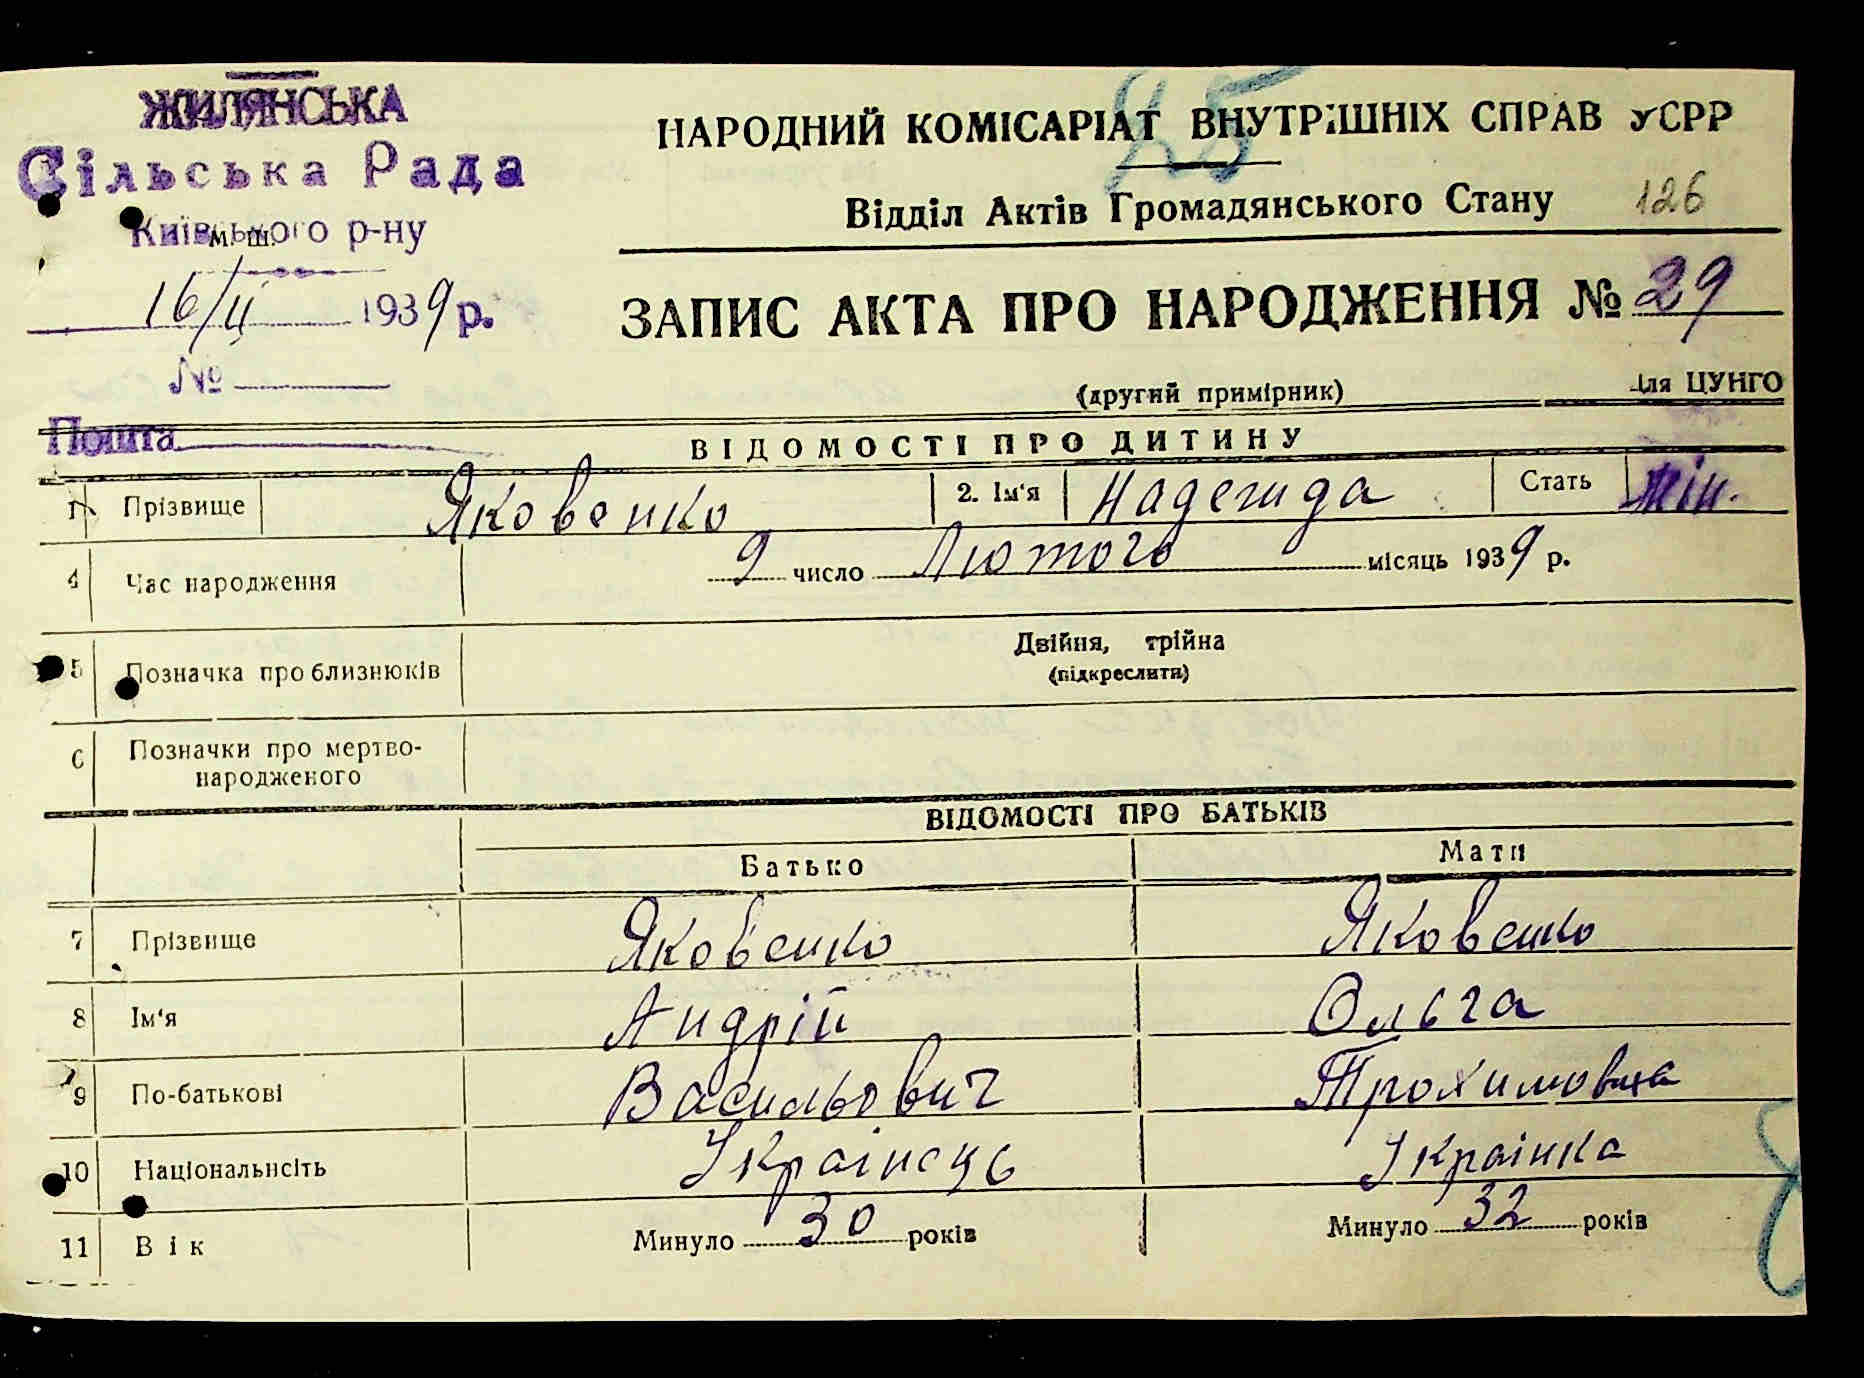 ЖИЛЯНСЬКА
Сільська Рада
Київського р-ну
м. ш.
16/ІІ 1939 р.
№
Пошта
25
НАРОДНИЙ КОМІСАРІАТ ВНУТРІШНІХ СПРАВ УСРР
Відділ Актів Громадянського Стану 126
ЗАПИС АКТА ПРО НАРОДЖЕННЯ № 29
(другий примірник) Для ЦУНГО
ВІДОМОСТІ ПРО ДИТИНУ
1 Прізвище Яковенко 2. Ім'я Надежда Стать жін.
4 Час народження 9 число Лютого місяць 1939 р.
5 Позначка про близнюків Двійня, трійна
(підкреслити)
6 Позначки про мертво-
народженого
ВІДОМОСТІ ПРО БАТЬКІВ
Батько Мати
7 Прізвище Яковенко Яковенко
8 Ім'я Андрій Ольга
9 По-батькові Васильович Трохимовна
10 Національнсіть Українець Українка
11 Вік Минуло 30 років Минуло 32 років